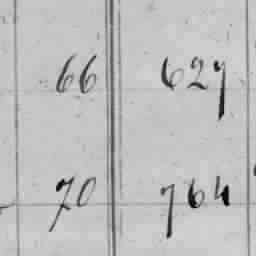 66 627
70 764